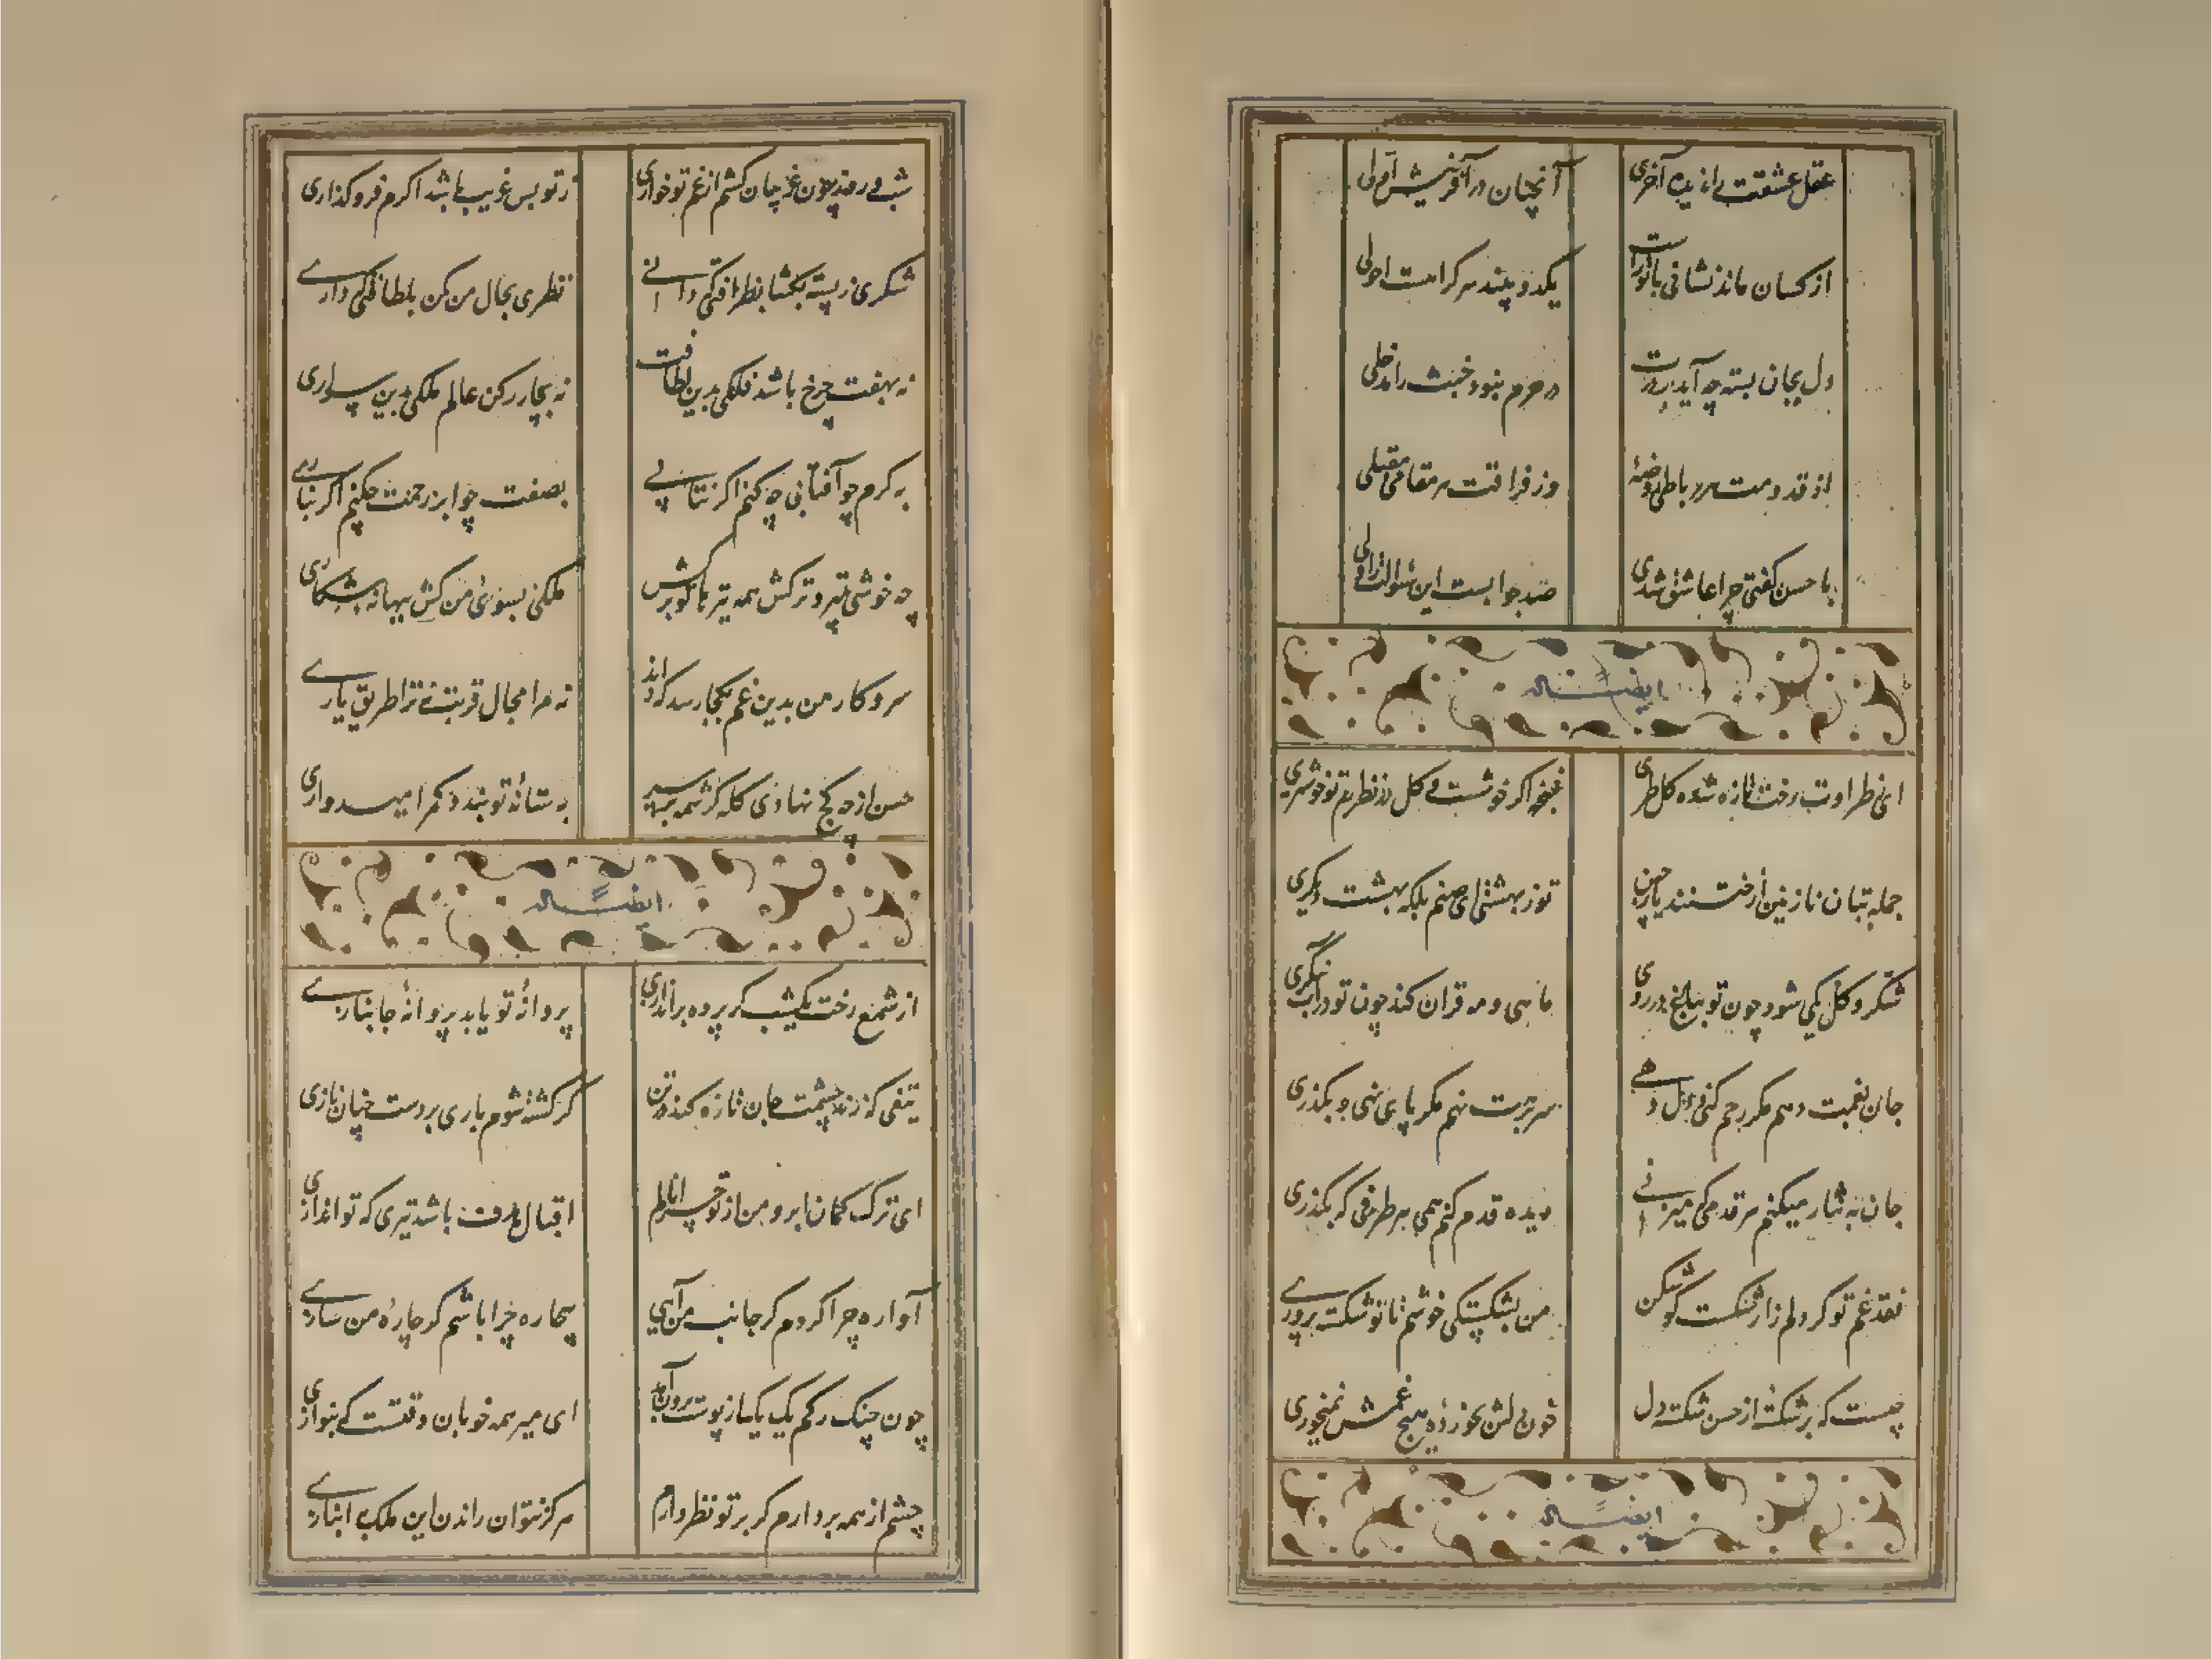 عقل عشقت بی اندیده آخری آنچنان در آفرینش اولی
از کسان ماند نشانی باتو راست یکدو بیند هر کرا هست احولی
دل بجان بسته چه آید بر درت در حرم نبود خبث را مدخلی
از قدومت هر رباطی روضهٔ وز فراقت هر مقامی مقتلی
با حسن گفتی چرا عاشق شدی صد جوابست این سوالت را ولی
ایضاً له
ای ز طراوت رخت تازه شده گل طری غنچه اگر خوشست و گل در نظرم تو خوشتری
جمله بتان نازنین از رخت تو ز بهشتی ای صنم بلکه بهشت دیگری
شکر و گل یکی شود چون تو بباغ در روی ماهی و مه قران کند چون تو در آب بنگری
جان بغمت دهم مگر رحم کنی و دل دهی سر برهت نهم مگر پای نهی و بگذری
جان به نثار میکنم هر قدمی که میزنی دیده قدم کنم همی هر طرفی که بگذری
نقد غم تو گر دلم زار شکست گو شکن من بشکستگی خوشم تا تو شکسته پروری
چیست که بر شکستهٔ از حسن شکسته دل خون دلش بخوردهٔ هیچ غمش نمیخوری
ایضاً له
شب و روز چون غریبان کشم از غم تو خواری ز تو بس غریب باشد اگرم فرو گذاری
شکری ز پسته بگشا بنظرافتی که دانی نظری بحال من کن بلطافتی که داری
نه بهفت چرخ باشد فلکی بدین لطافت نه بچار رکن عالم ملکی بدین سواری
به کرم چو آفتابی چه کنم اگر نتابی بصفت چو ابر رحمت چکنم اگر نباری
چه خوشی بتیر و ترکش همه تیر ملکی بسوی من کش ببهانهٔ شکاری
سر و کار من بدین غم بکجا رسد که داند نه مرا مجال قربت نه ترا طریق یاری
حسن از چه کج نهادی کله کرشمه بر سر به ستانهٔ تو بندد کمر امیدواری
ایضاً له
از شمع رخت یکشب گر پرده براندازی پروانهٔ تو یابد پروانهٔ جانبازی
تیغی که زند چشمت جان تازه کند در تن گر کشته شوم باری بر دست چنان نازی
ای ترک کمان ابرو من از تو اقبال هدف باشد تیری که تو اندازی
آواره چرا گردم گر جانب من آیی بیچاره چرا باشم گر چارهٔ من سازی
چون چنگ رگم یک یک از پوست برون آمد ای میر همه خوبان وقتست که بنوازی
چشم از همه بردارم گر بر تو نظر دارم هرگز نتوان راندن این ملک بانبازی